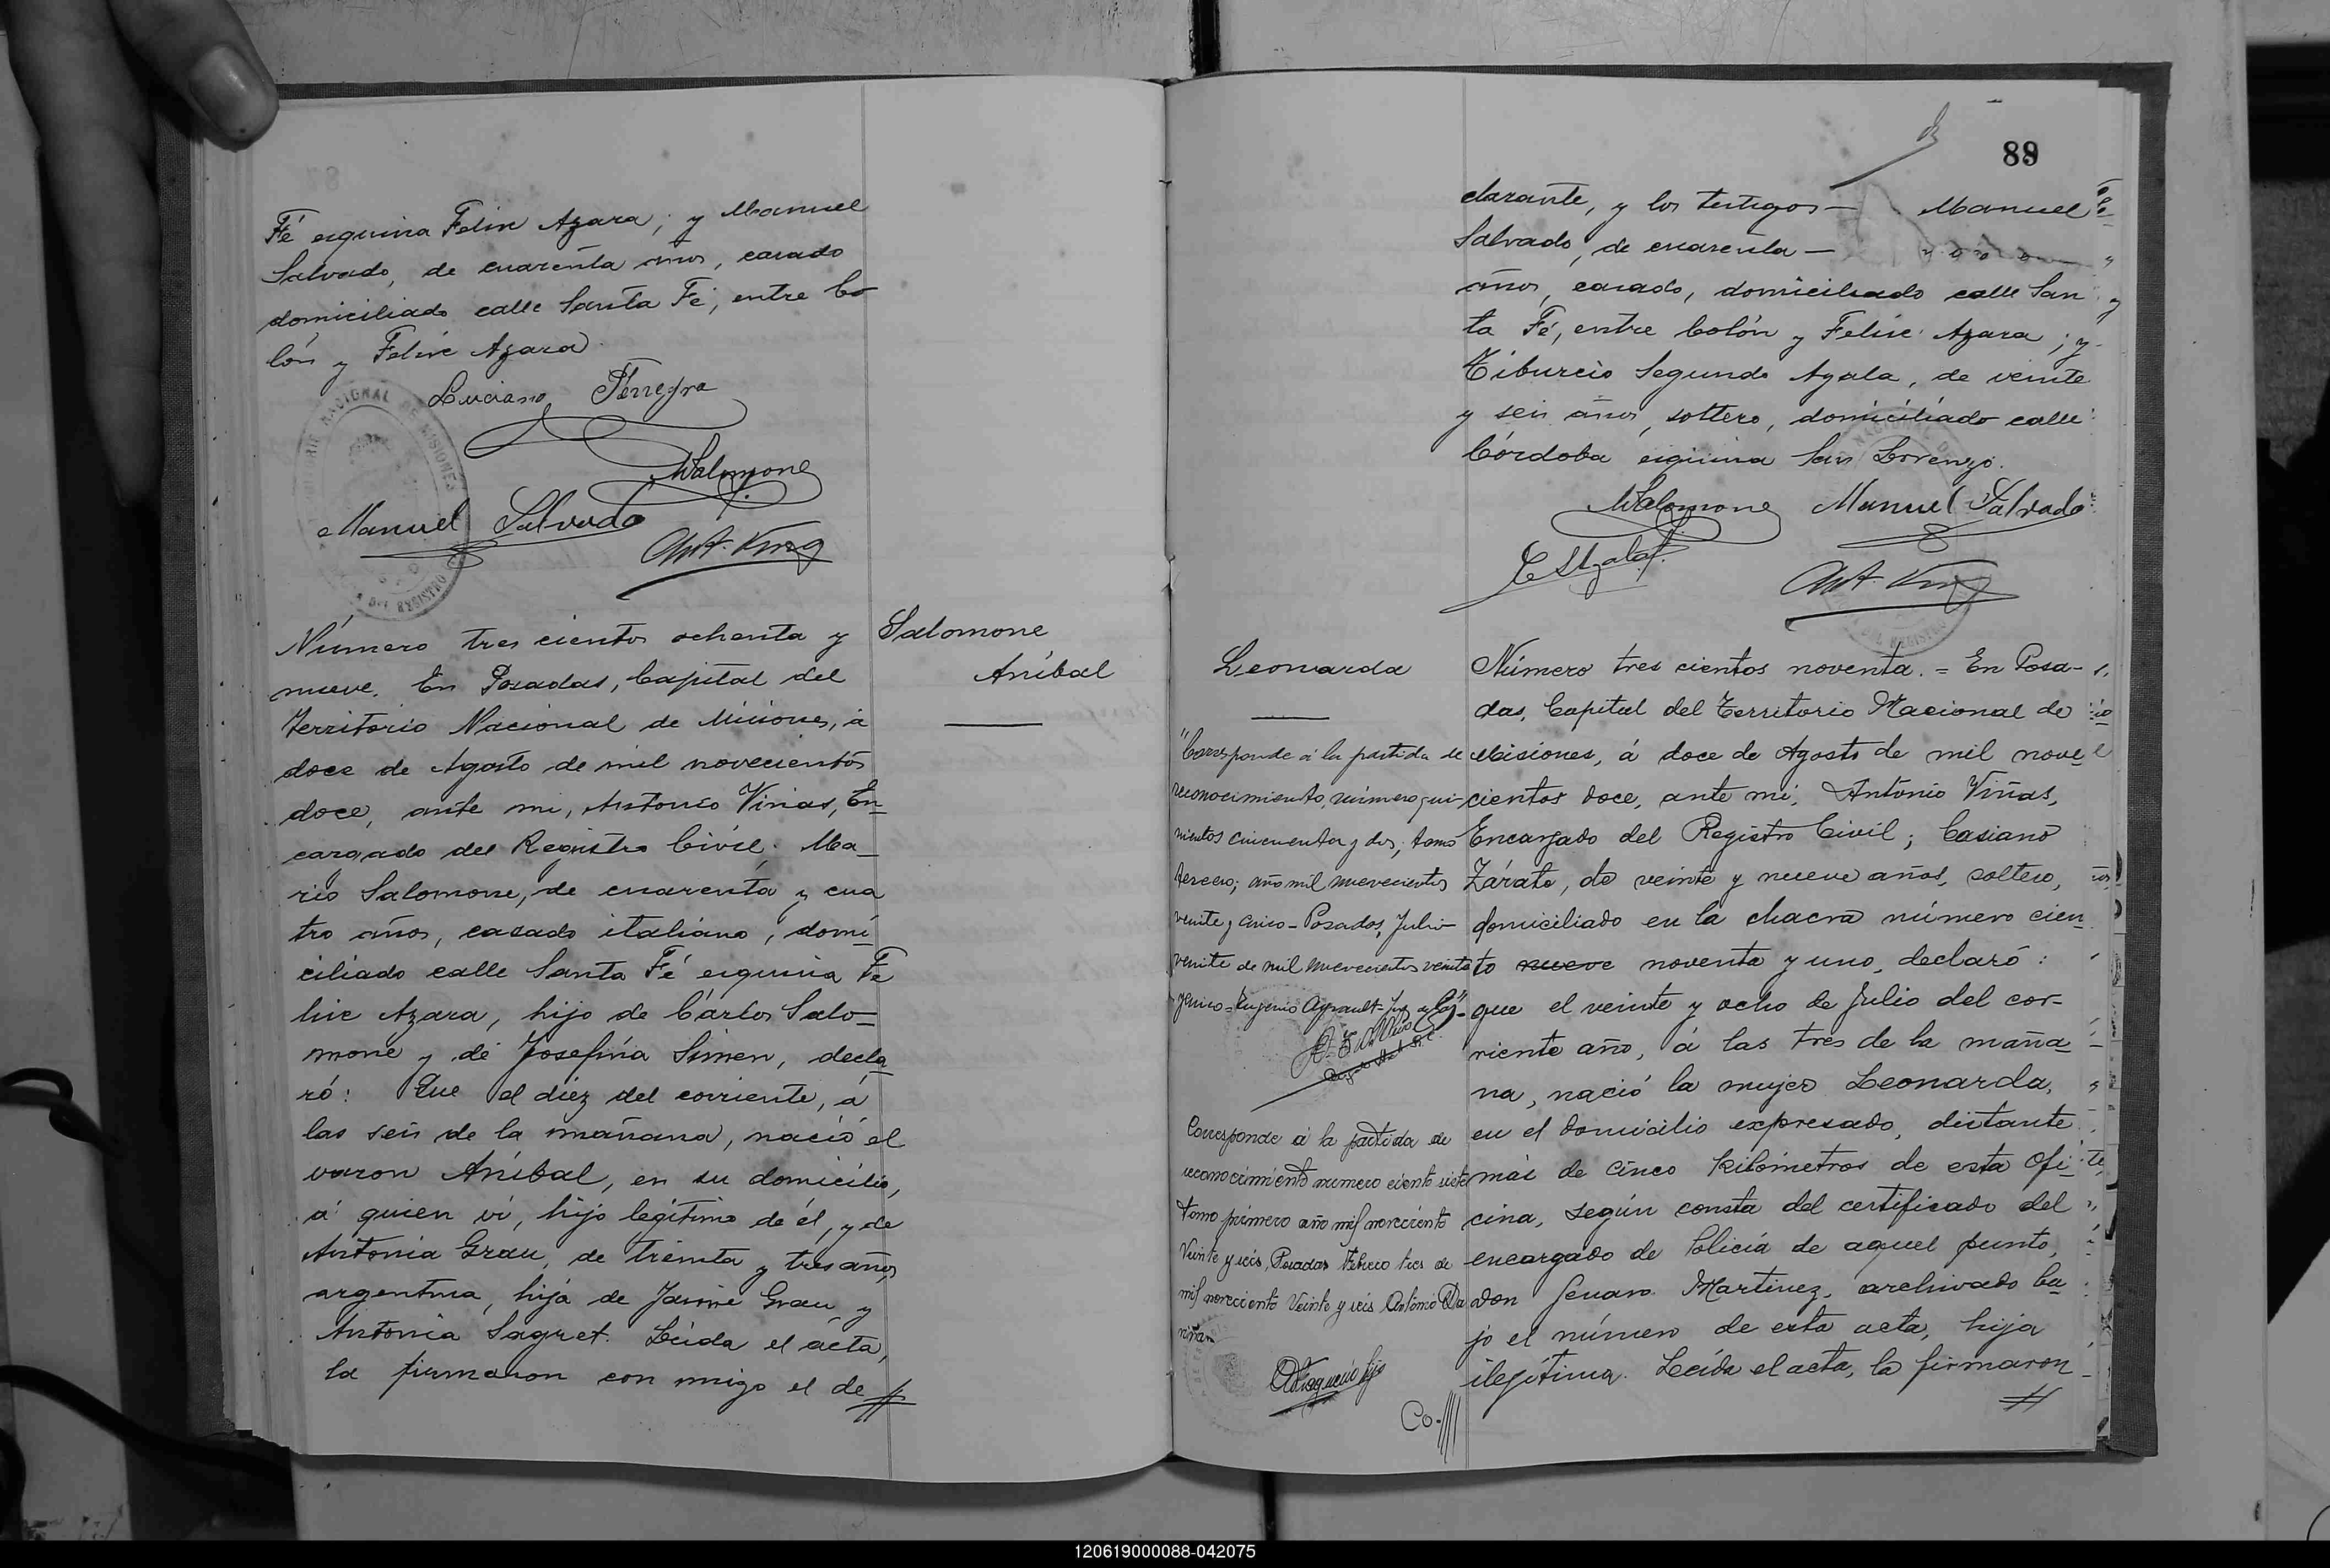 Fé esquina Felix Azara; y Manuel
Salvado, de cuarenta años, casado
domiciliado calle Santa Fé, entre Co
lón y Felix Azara
Luciano
MSalomone
Manuel Salvado
Salomone
Aníbal
Número tres cientos ochenta y
nueve. En Posadas, Capital del
Territorio Nacional de Misiones, á
doce de Agosto de mil novecientos
doce, ante mi, Antonio Viñas, En
cargado del Registro Civil; Ma
rio Salomone, de cuarenta y cua
tro años, casado italiano, domi
ciliado calle Santa Fé esquina Fe
lix Azara, hijo de Cárlos Salo
mone y de Josefina Simen, decla
ró: Que el diez del corriente, á
las seis de la mañana, nació el
varon Aníbal, en su domicilio,
á quien ví, hijo legítimo de él, y de
Antonia Grau, de treinta y tres años,
argentina, hija de Jaime Grau y
Antonia Sagret. Leida el acta,
la firmaron con migo el de
89
clarante, y los testigos — Manuel
Salvado, de cuarenta —
años, casado, domiciliado calle San
ta Fé, entre Colón y Felix Azara; y
Tiburcio Segundo Ayala, de veinte
y seis años, soltero, domiciliado calle
Córdoba esquina San Lorenzo.
MSalomone Manuel Salvado
Leonarda
"Corresponde á la partida de
reconocimiento, número qui-
nientos cincuenta y dos, tomo
tercero; año mil nuevecientos
veinte y cinco - Posadas, Julio
veinte de mil nuevecientos veinte
y cinco = Eugenio
Corresponde á la partida de
reconocimiento numero ciento siete
tomo primero año mil noveciento
Veinte y seis, Posadas Febrero tres de
mil noveciento Veinte y seis Antonio
Co.
Número tres cientos noventa. = En Posa-
das, Capital del Territorio Nacional de
Misiones, á doce de Agosto de mil nove
cientos doce, ante mi, Antonio Viñas,
Encargado del Registro Civil; Casiano
Zárate, de veinte y nueve años, soltero,
domiciliado en la chacra número cien
to nueve noventa y uno, declaró:
que el veinte y ocho de Julio del cor-
riente año, á las tres de la maña
na, nació la mujer Leonarda,
en el domicilio expresado, distante
más de cinco kilómetros de esta Ofi
cina, según consta del certificado del
encargado de Policía de aquel punto,
don Genaro Martinez, archivado ba
jo el número de esta acta, hija
ilegítima. Leída el acta, la firmaron
120619000088-042075